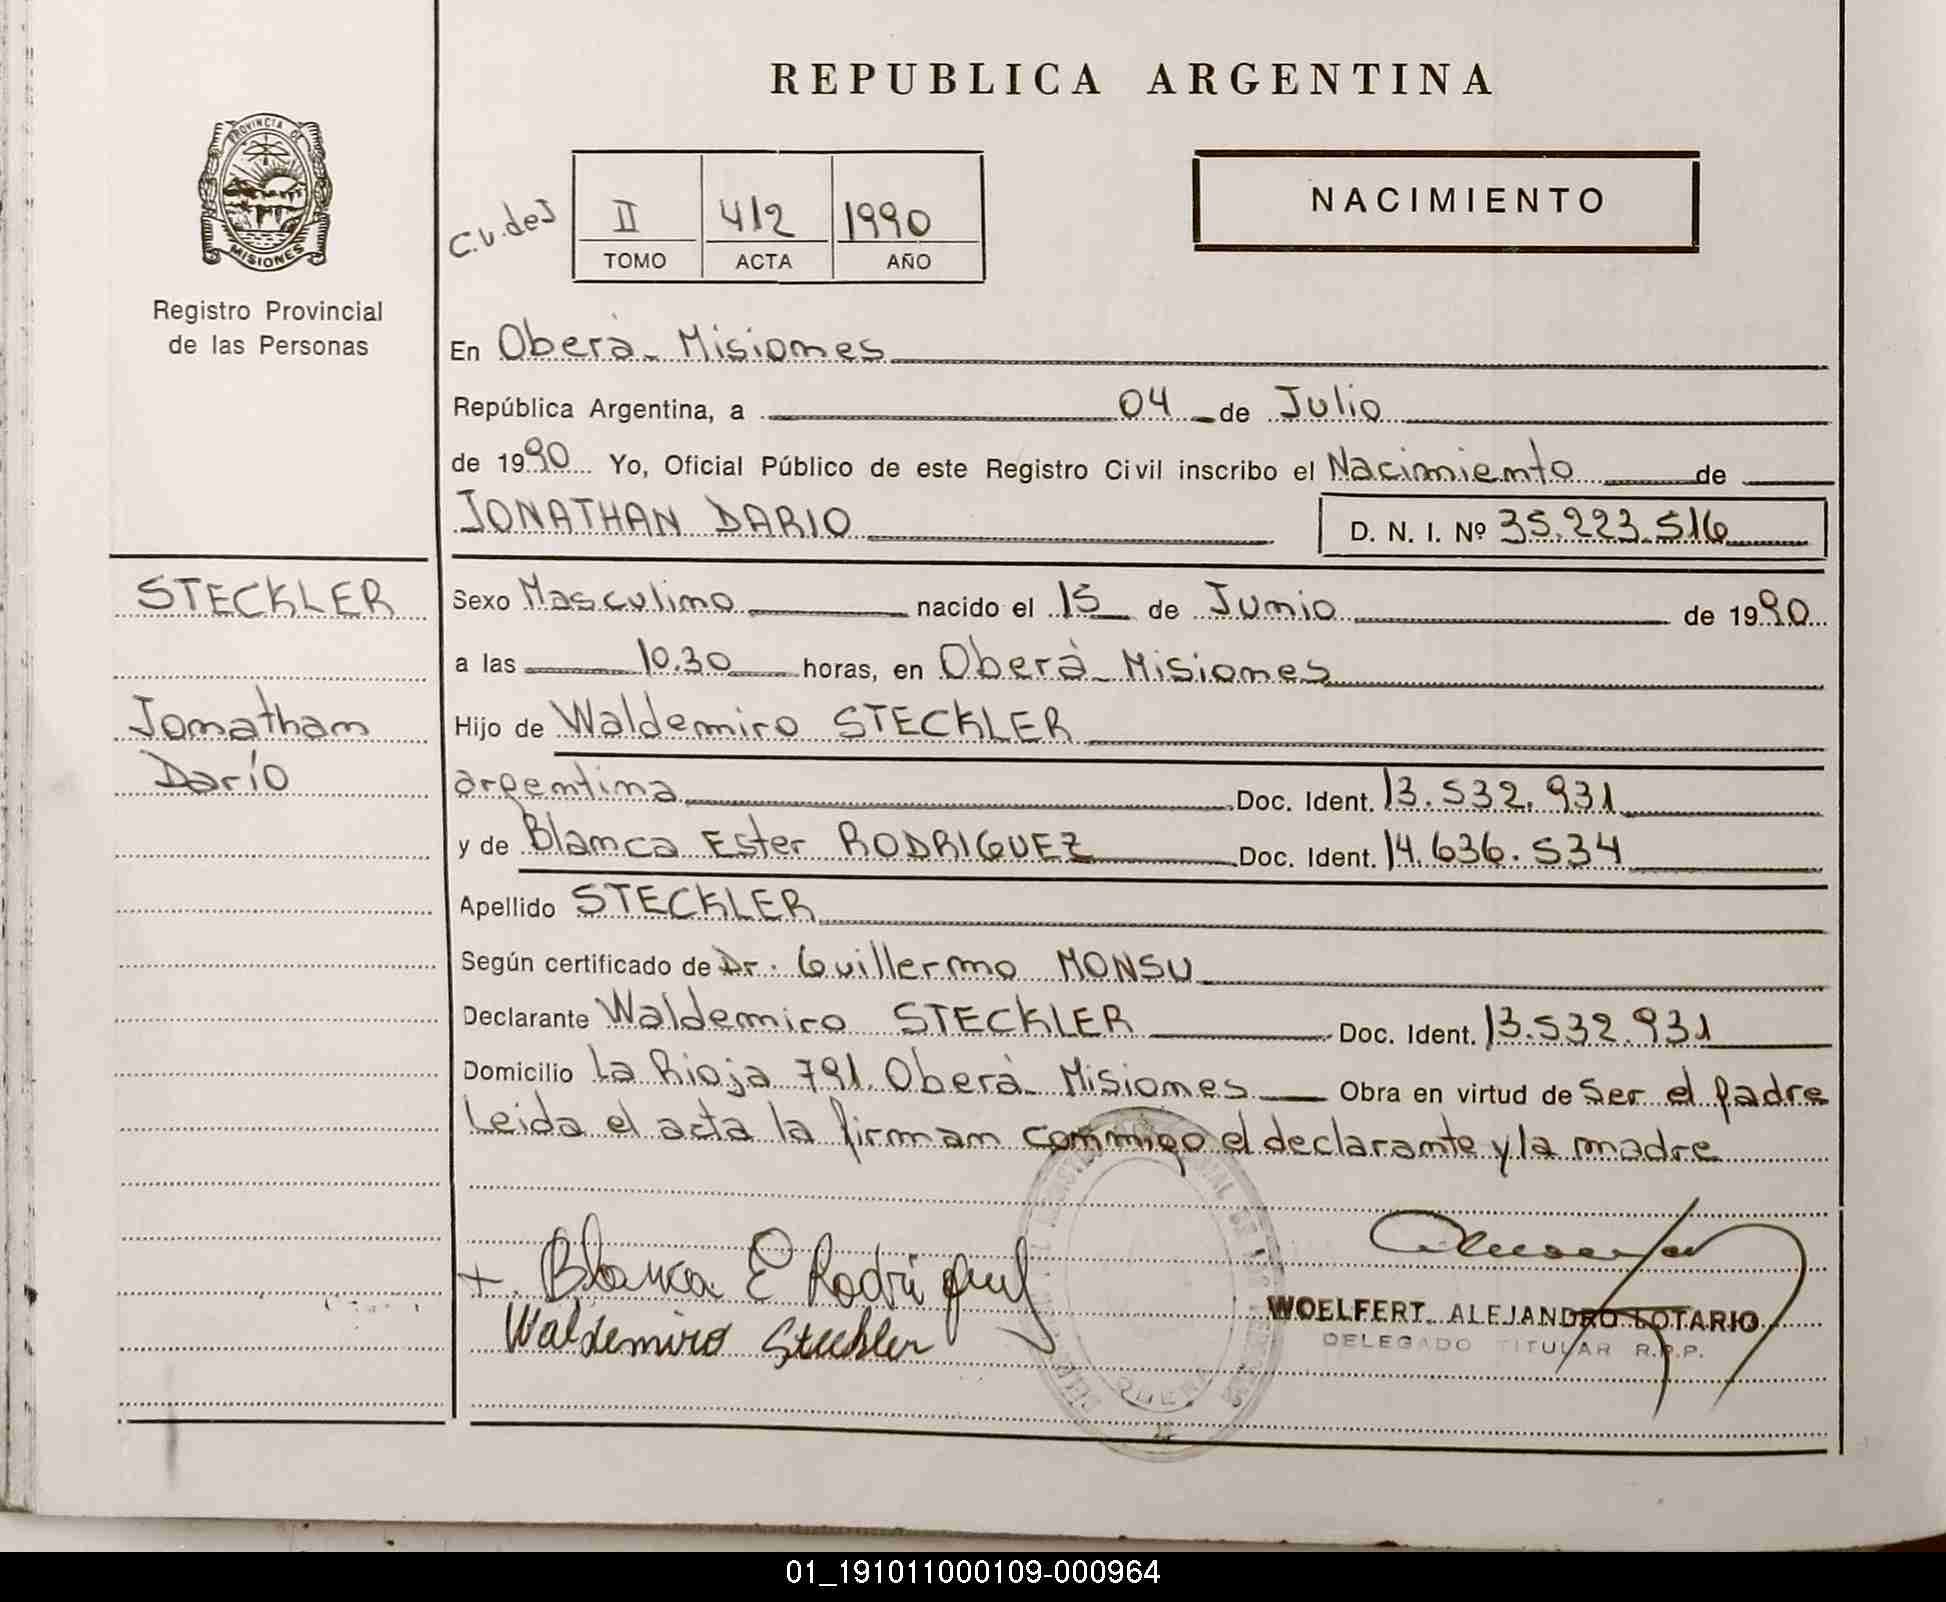 REPUBLICA ARGENTINA
PROVINCIA DE
MISIONES
Registro Provincial
de las Personas
C.V. des
II 412 1990
TOMO ACTA AÑO
NACIMIENTO
En Oberá - Misiones
República Argentina, a 04 de Julio
de 1990 Yo, Oficial Público de este Registro Civil inscribo el Nacimiento de
JONATHAN DARIO D. N. I. Nº 35.223.516
STECKLER
Jonathan
Darío
Sexo Masculino nacido el 15 de Junio de 1990
a las 10.30 horas, en Oberá - Misiones
Hijo de Waldemiro STECKLER
argentina Doc. Ident. 13.532.931
y de Blanca Ester RODRIGUEZ Doc. Ident. 14.636.534
Apellido STECKLER
Según certificado de Dr. Guillermo MONSU
Declarante Waldemiro STECKLER Doc. Ident. 13.532.931
Domicilio La Rioja 791. Oberá - Misiones Obra en virtud de Ser el padre
Leida el acta la firman conmigo el declarante y la madre
+ Blanca E Rodriguez
Waldemiro Steckler
WOELFERT. ALEJANDRO LOTARIO
DELEGADO TITULAR R.P.P.
01_191011000109-000964